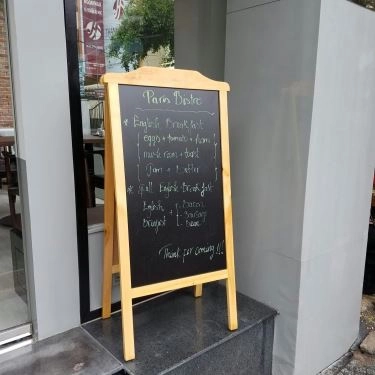 Paris Bistro
* English Breakfast
eggs + tomato + ham
mushroom + toast
Jam + Butter
* Full English Breakfast
English + Bacon
Breakfast Sausage
Beans
Thank for coming !!!